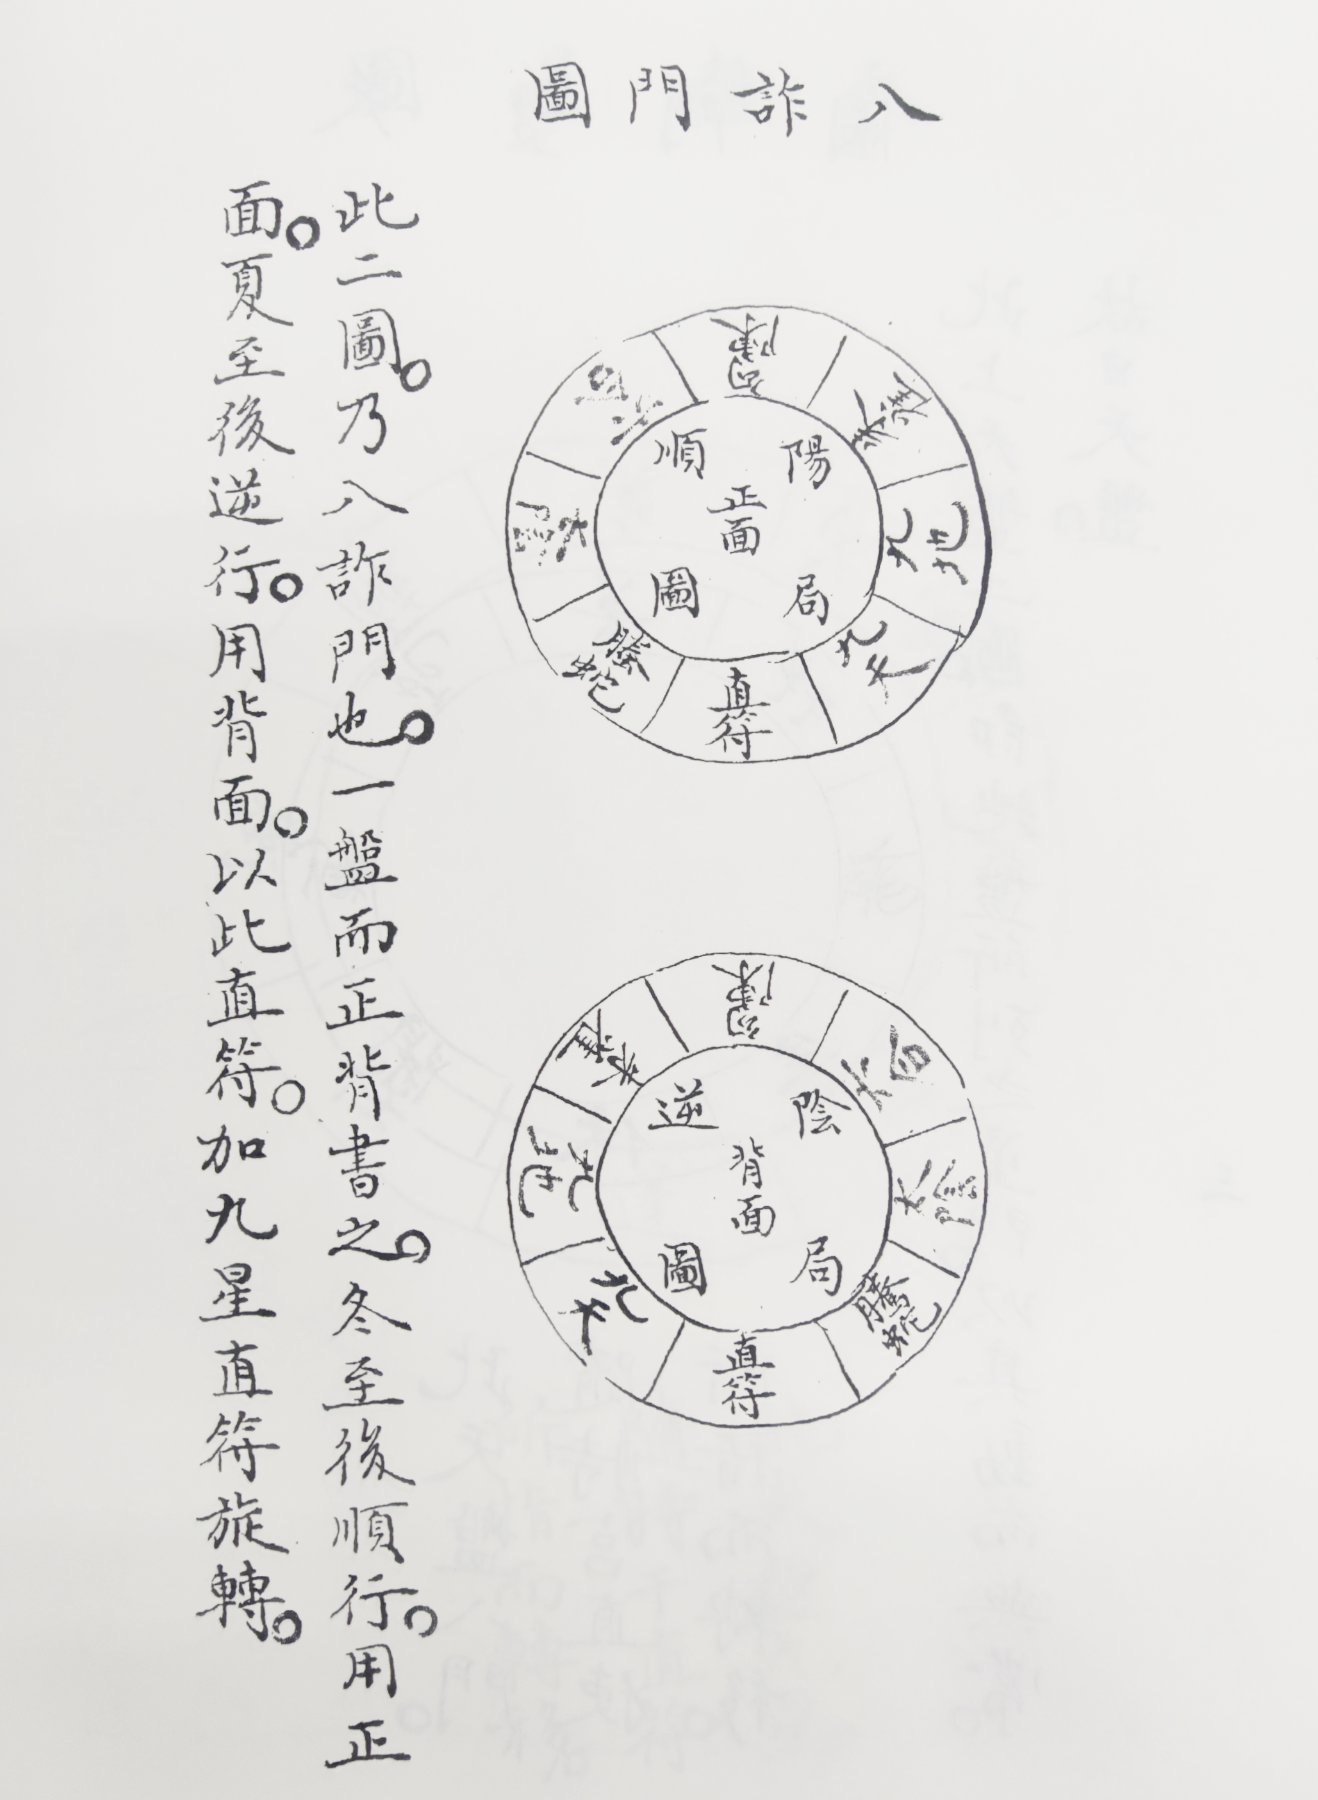 八詐門圖
陽局順圖
正面
直符
螣蛇
太陰
六合
勾陳
朱雀
九地
九天
陰局逆圖
背面
直符
螣蛇
太陰
六合
勾陳
朱雀
九地
九天
此二圖。乃八詐門也。一盤而正背書之。冬至後順行。用正
面。夏至後逆行。用背面。以此直符。加九星直符旋轉。